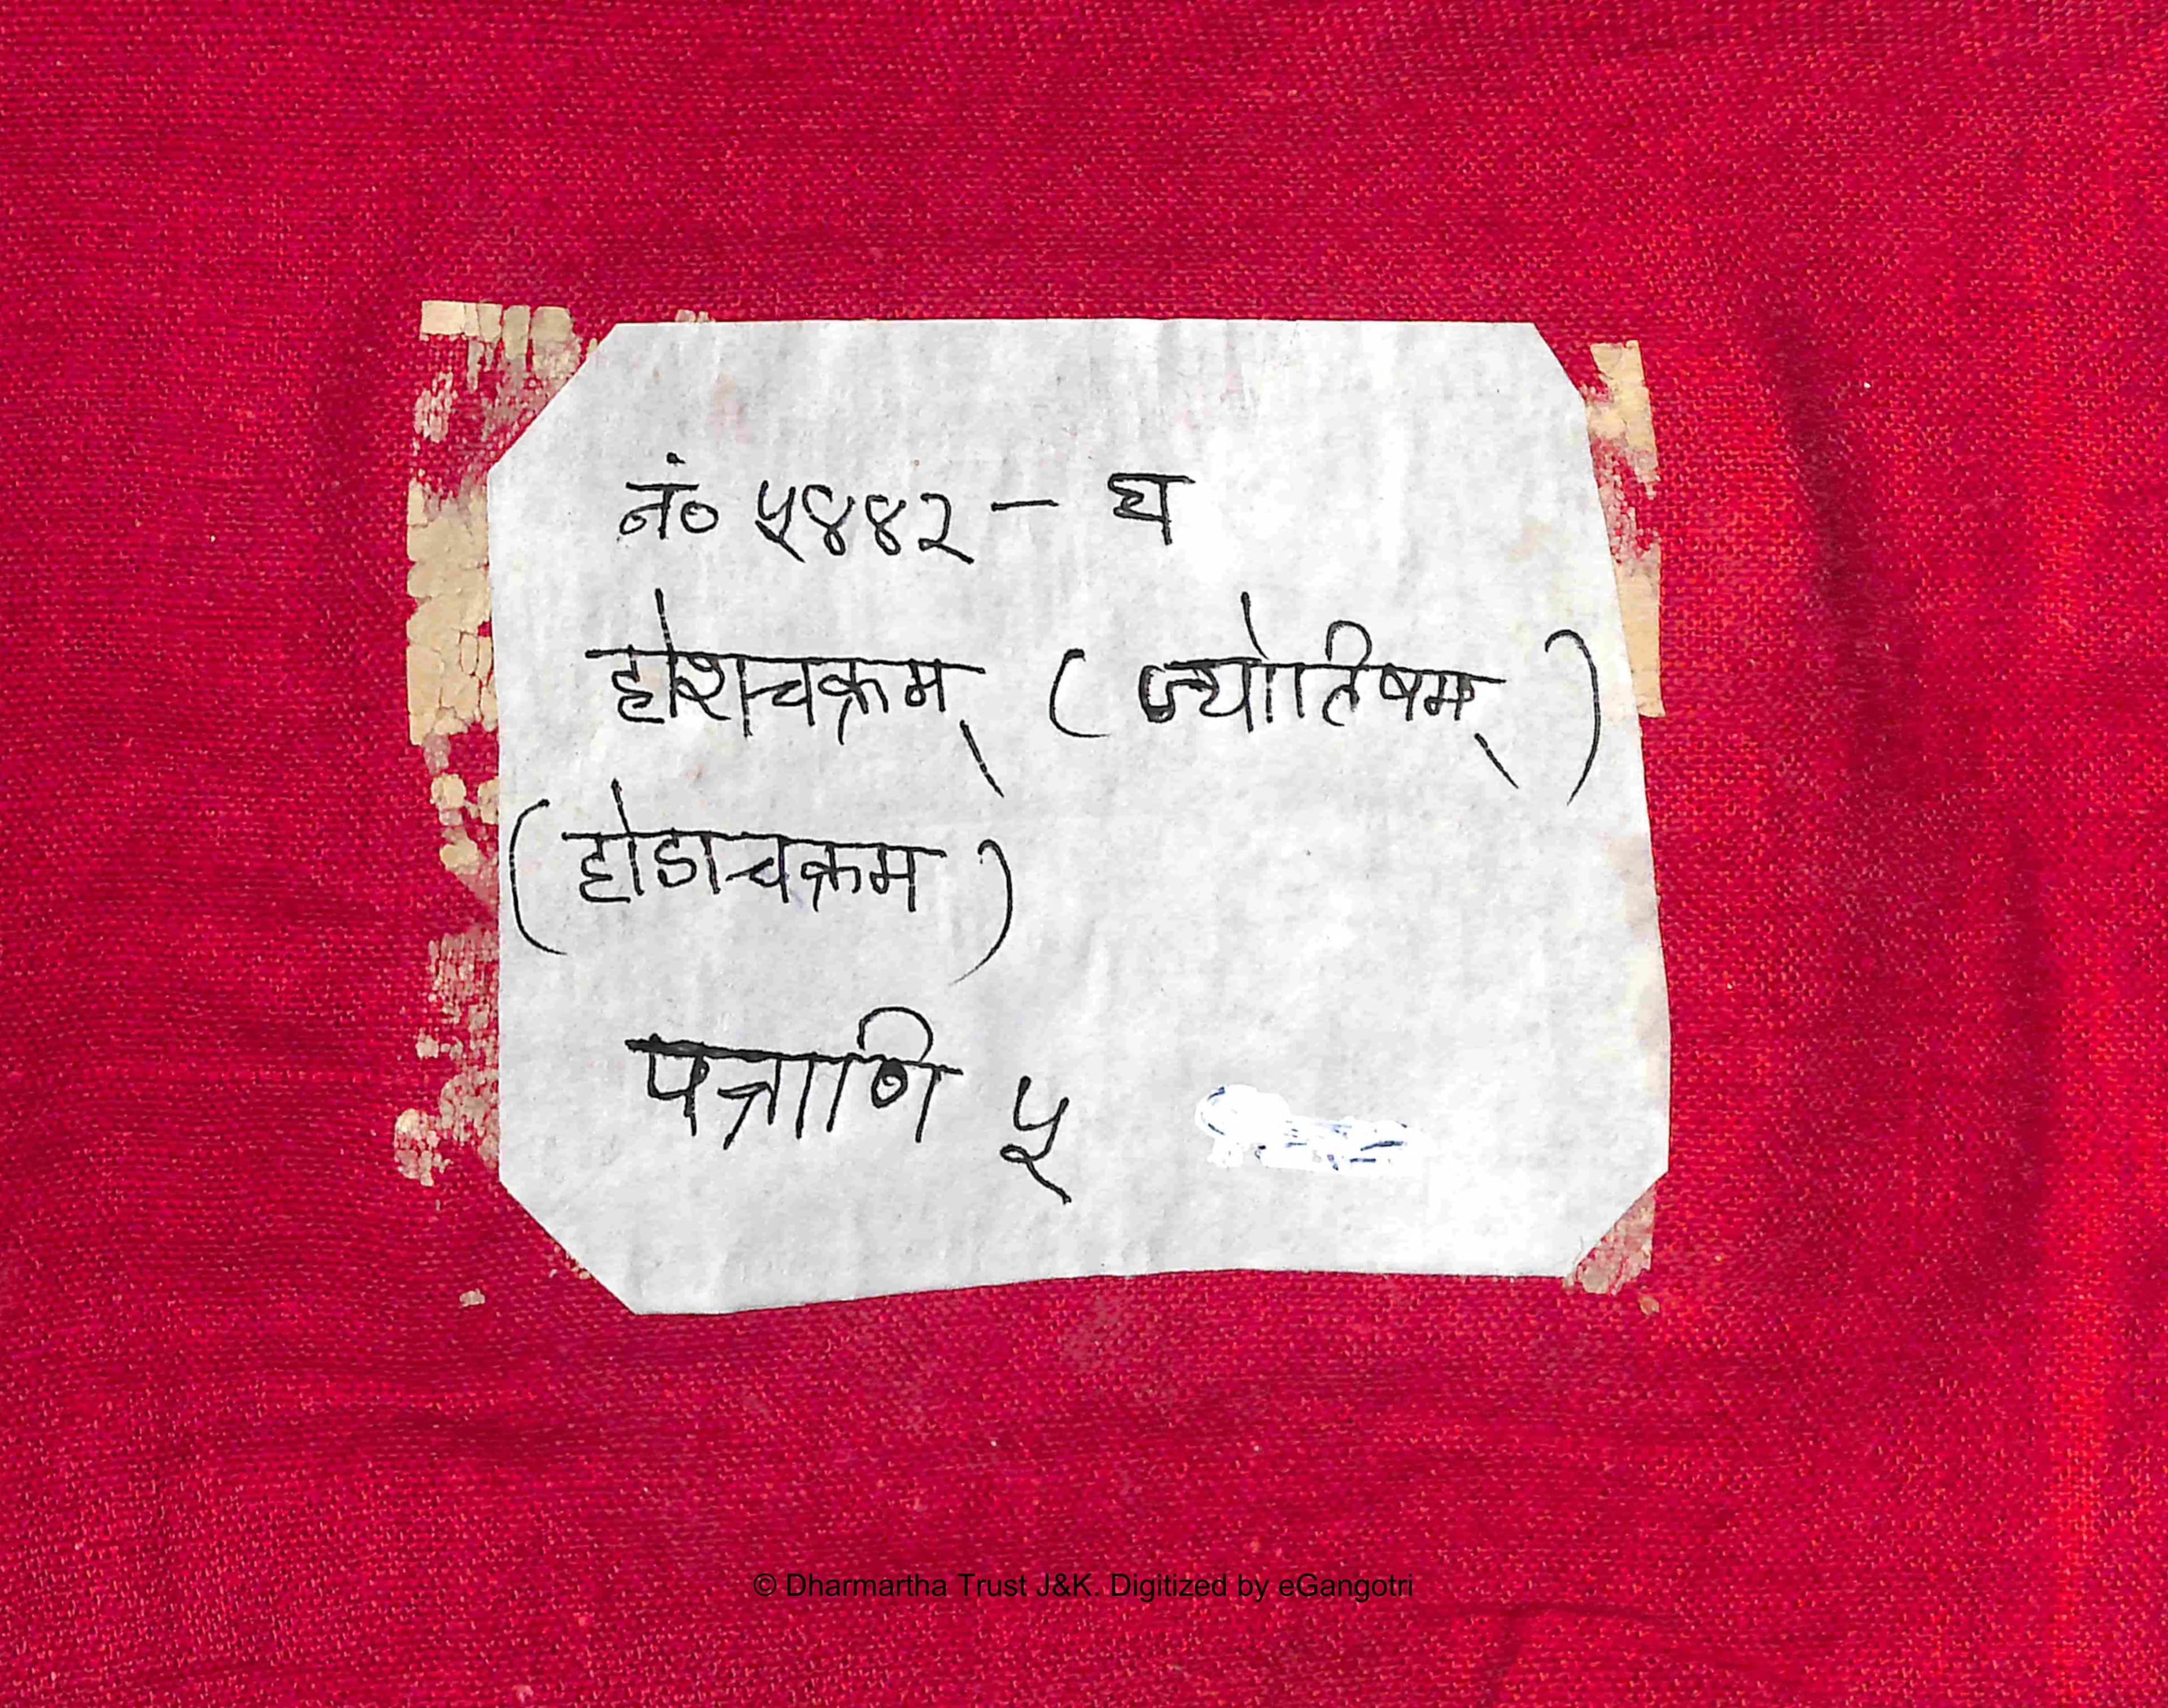 नं० ५४४२ - घ
होराचक्रम् (ज्योतिषम्)
(होडाचक्रम)
पत्राणि ५
© Dharmartha Trust J&K. Digitized by eGangotri